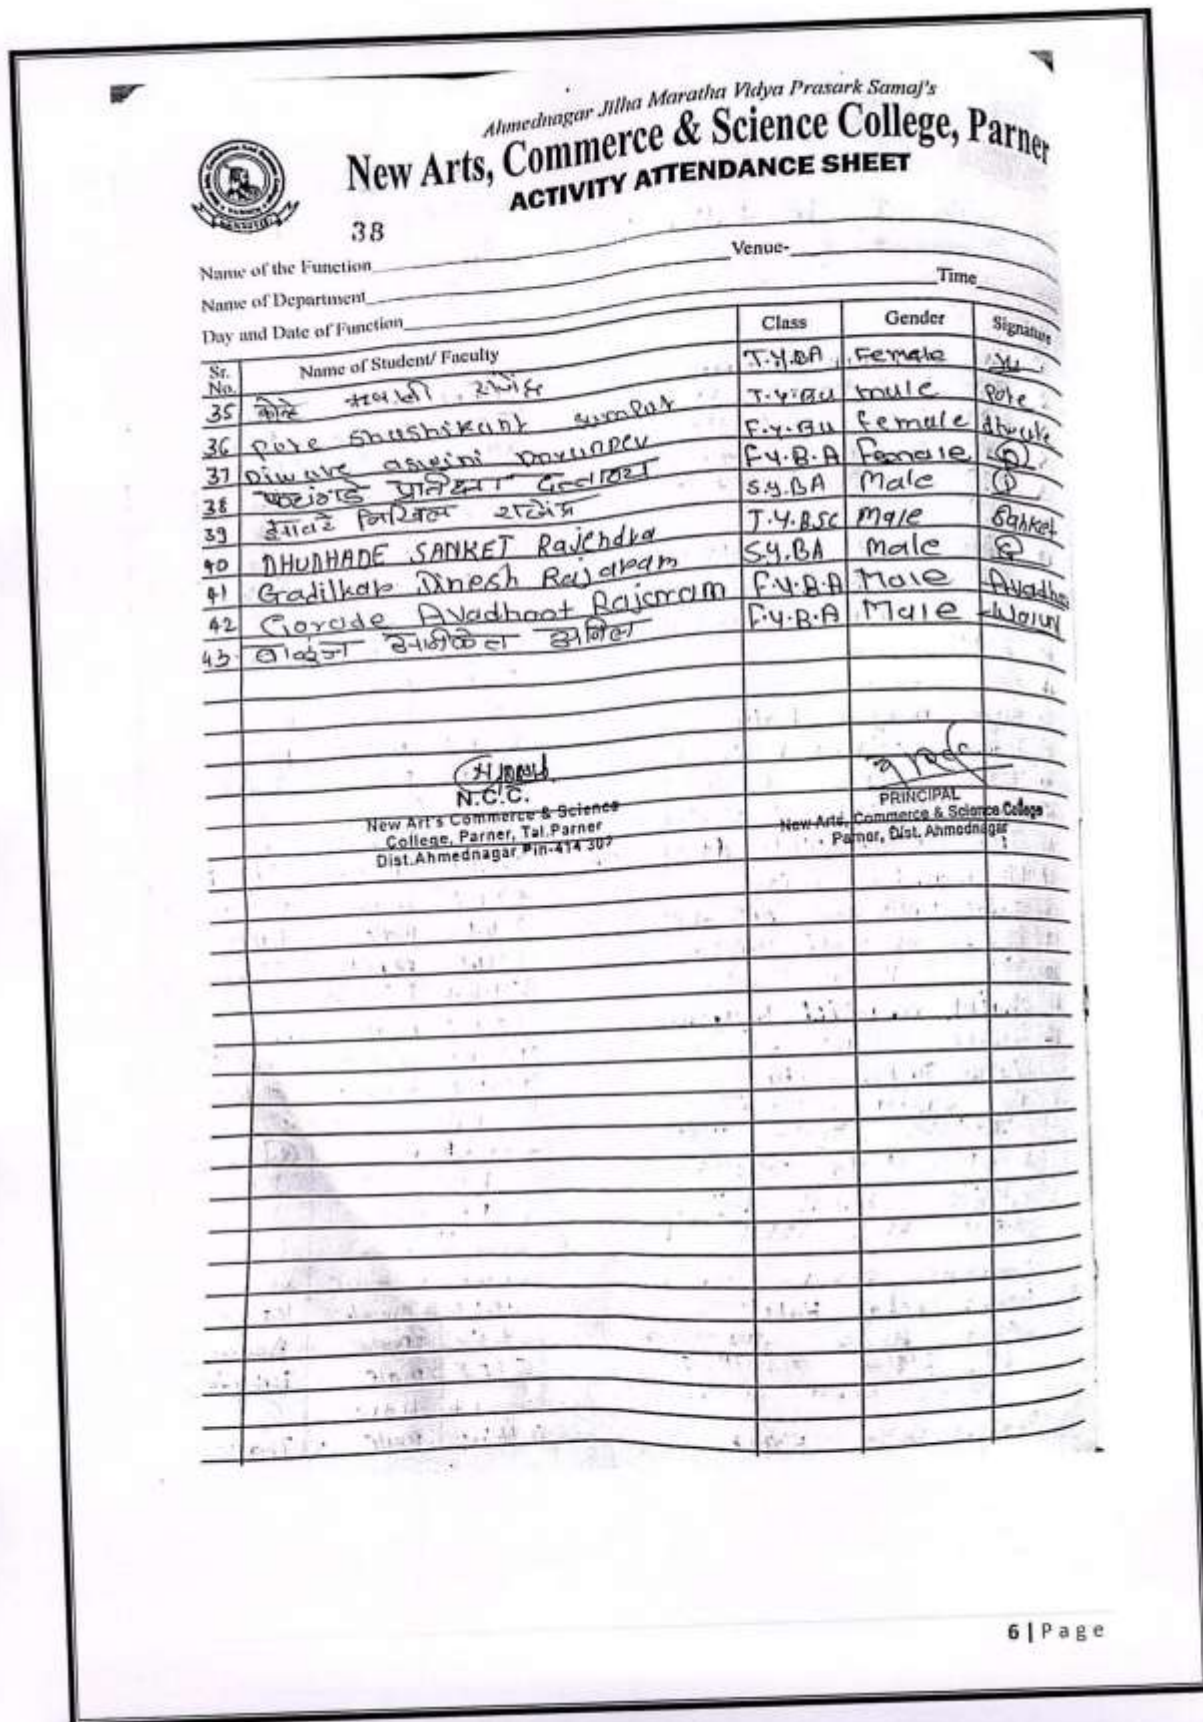 Ahmednagar Jilha Maratha Vidya Prasark Samaj's
New Arts, Commerce & Science College, Parner
ACTIVITY ATTENDANCE SHEET
38
Name of the Function Venue-
Name of Department
Day and Date of Function Time
Sr. No. Name of Student/ Faculty Class Gender Signature
35 T.Y.BA Female
36 Pote Shashikant sumpat T.Y.BU mule Pote
37 Diware aswini F.Y.BU female
38 F.Y.B.A Female
39 निखिल S.Y.BA Male
40 DHUDHADE SANKET Rajendra T.Y.BSC Male Sanket
41 Gadilkar Dinesh Rajaram S.Y.BA Male
42 Gorade Avadhoot Rajaram F.Y.B.A Male Avadho
43 F.Y.B.A Male
N.C.C.
New Art's Commerce & Science
College, Parner, Tal.Parner
Dist.Ahmednagar Pin-414 302
PRINCIPAL
New Arts, Commerce & Science College
Parner, Dist. Ahmednagar
6 | Page